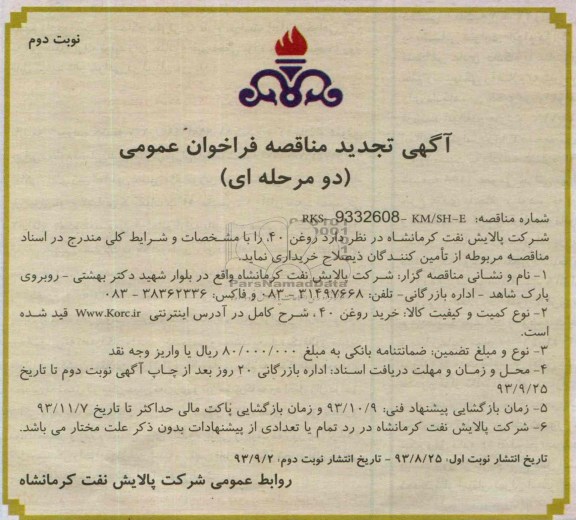 نوبت دوم
آگهی تجدید مناقصه فراخوان عمومی
(دو مرحله ای)
شماره مناقصه: RKS- 9332608- KM/SH-E
شرکت پالایش نفت کرمانشاه در نظر دارد روغن ۴۰ را با مشخصات و شرایط کلی مندرج در اسناد
مناقصه مربوطه از تأمین کنندگان ذیصلاح خریداری نماید.
۱- نام و نشانی مناقصه گزار: شرکت پالایش نفت کرمانشاه واقع در بلوار شهید دکتر بهشتی - روبروی
پارک شاهد - اداره بازرگانی- تلفن: ۳۱۴۹۷۶۶۸ - ۰۸۳ و فاکس: ۳۸۳۶۲۳۳۶ - ۰۸۳
۲- نوع کمیت و کیفیت کالا: خرید روغن ۴۰ ، شرح کامل در آدرس اینترنتی Www.Korc.ir قید شده
است.
۳- نوع و مبلغ تضمین: ضمانتنامه بانکی به مبلغ ۸۰/۰۰۰/۰۰۰ ریال یا واریز وجه نقد
۴- محل و زمان و مهلت دریافت اسناد: اداره بازرگانی ۲۰ روز بعد از چاپ آگهی نوبت دوم تا تاریخ
۹۳/۹/۲۵
۵- زمان بازگشایی پیشنهاد فنی: ۹۳/۱۰/۹ و زمان بازگشایی پاکت مالی حداکثر تا تاریخ ۹۳/۱۱/۷
۶- شرکت پالایش نفت کرمانشاه در رد تمام یا تعدادی از پیشنهادات بدون ذکر علت مختار می باشد.
تاریخ انتشار نوبت اول: ۹۳/۸/۲۵ - تاریخ انتشار نوبت دوم: ۹۳/۹/۲
روابط عمومی شرکت پالایش نفت کرمانشاه